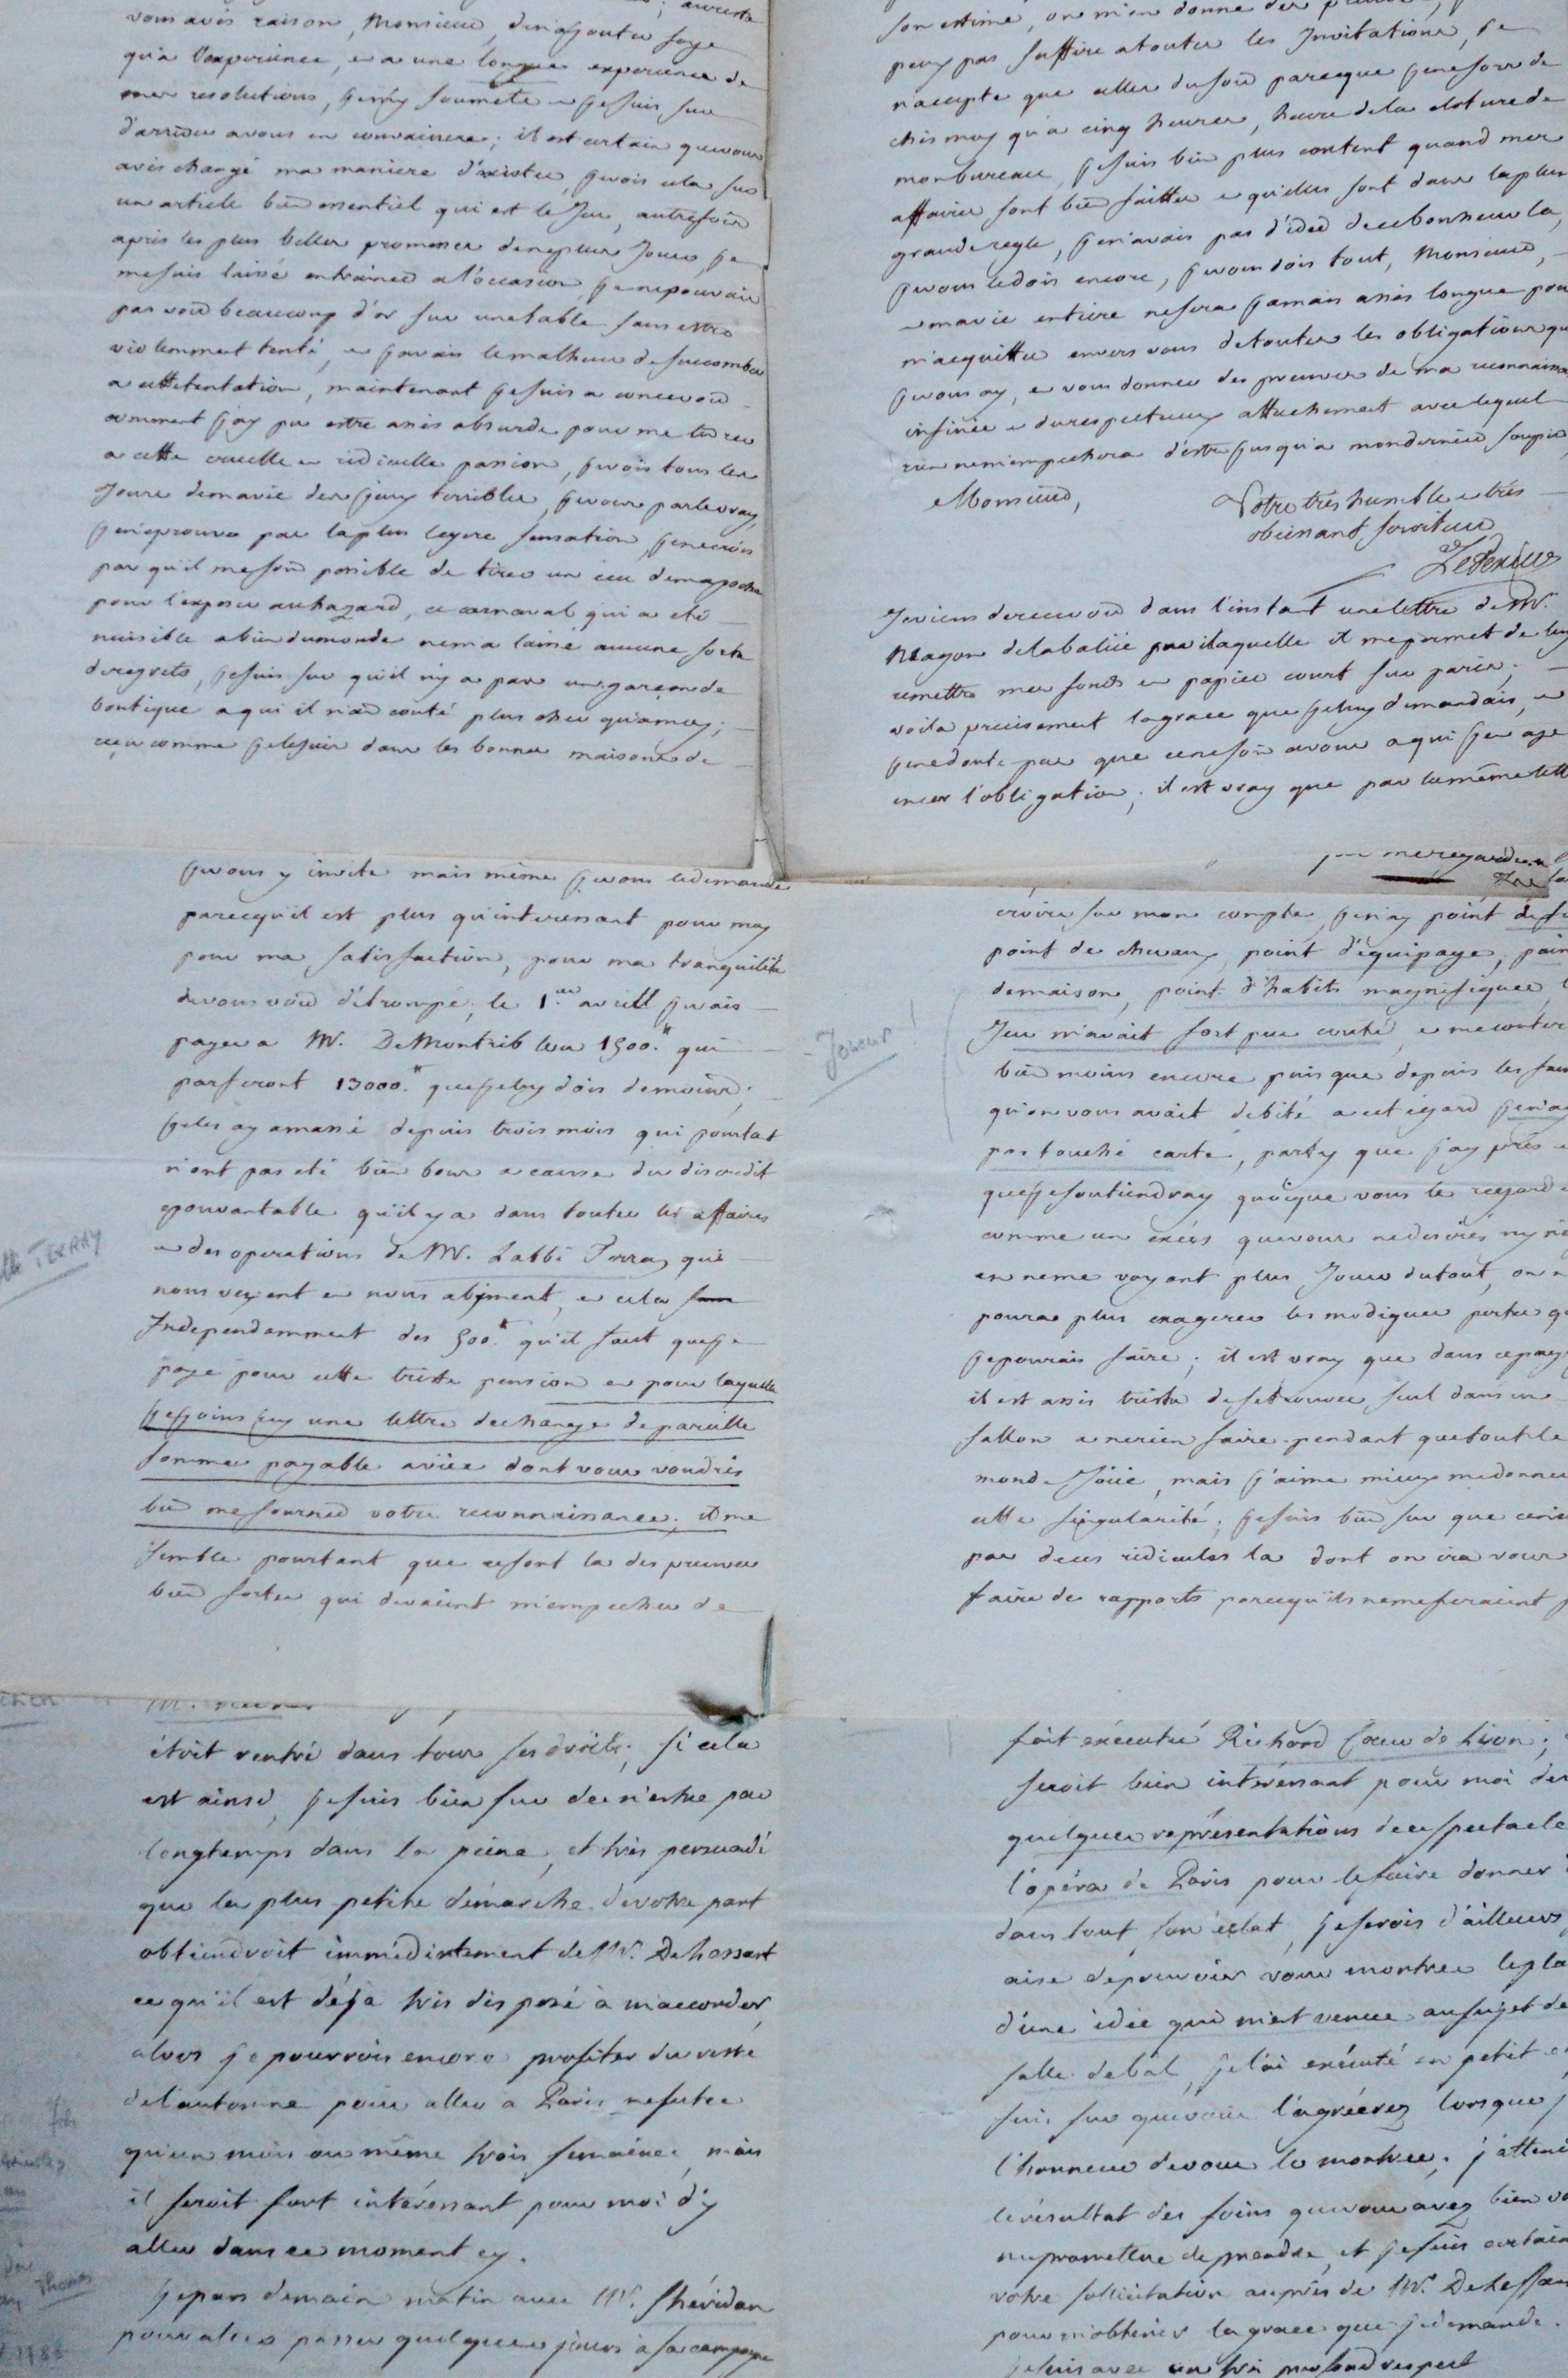 vous avés raison, Monsieur, de n'ajouter foye
qu'a l'experience, e a une longue experience de
mes resolutions, je m'y soumets e je suis sur
d'arriver a vous en convaincre; il est certain que vous
avés changé ma maniere d'exister, je vois cela sur
un article bien essentiel qui est le Jeu, autrefois
aprés les plus belles promesses de ne plus Jouer, je
me suis laissé entrainer a l'occasion, je ne pouvais
pas voir beaucoup d'or sur une table sans estre
violemment tenté, e j'avais le malheur de succomber
a cette tentation, maintenant je suis a concevoir
comment j'ay pu estre assés absurde pour me livrer
a cette cruelle e ridicule passion, je vois tous les
Jours de ma vie des jeux terribles, je vous parle vray,
je n'eprouve pas la plus legere sensation, je ne crois
pas qu'il me soit possible de tirer un ecu de ma poche
pour l'exposer au hazard, ce carnaval qui a eté
nuisible a bien du monde ne m'a laissé aucune sorte
de regrets, je suis sur qu'il n'y a pas un garçon de
boutique a qui il n'ait couté plus cher qu'a moy;
reçu comme je le suis dans les bonnes maisons de
son estime, on m'en donne des
peux pas suffire a toutes les Invitations, je
n'accepte que celles du soir parceque je ne sors de
chés moy qu'a cinq heures, heure de la cloture de
mon bureau, je suis bien plus content quand mes
affaires sont bien faittes e qu'elles sont dans la plus
grande regle, je n'avais pas d'idée de ce bonheur la,
je vous le dois encore, je vous dois tout, Monsieur,
e ma vie entiere ne sera jamais assés longue pour
m'acquitter envers vous de toutes les obligations que
je vous ay, e vous donner des preuves de ma reconnaissance
infinie e du respectueux attachement avec lequel
rien ne m'empechera d'estre jusqu'a mon dernier soupir,
Monsieur,
Votre trés humble e trés
obeissant serviteur
Je viens de recevoir dans l'instant une lettre de Mr.
Magon de la baliie par laquelle il me permet de luy
remettre mes fonds en papier court sur paris;
voila precisement la grace que je luy demandais, e
je ne doute pas que ce ne soit a vous a qui j'en aye
encor l'obligation; il est vray que par la même lettre
je vous y invite mais même je vous le demande
parcequ'il est plus qu'interessant pour moy
pour ma satisfaction, pour ma tranquilité
de vous voir détrompé, le 1.er avrill je vais
payer a Mr. De Montrib les 1500.tt qui
parferont 13000.tt que je luy dois de moins;
je les ay amassé depuis trois mois qui pourtat
n'ont pas eté bien bons a cause du discredit
epouvantable qu'il y a dans toutes les affaires
e des operations de Mr. L'abbé Terray qui
nous vexent e nous abyment, e cela
Independemment des 500.tt qu'il faut que je
paye pour cette triste pension e pour laquelle
je joins icy une lettre de change de pareille
somme payable a vüe dont vous voudrés
bien me fournir votre reconnaissance, il me
semble pourtant que ce sont la des preuves
bien fortes qui devaient m'empecher de
abbé TERRAY
croire sur mon compte, je n'ay point de
point de chevaux, point d'équipage, point
de maison, point d'habits magnifiques, l
Jeu m'avait fort peu couté, e me coutera
bien moins encore puisque depuis les
qu'on vous avait debité a cet égard je n'ay
pas touché carte, party que j'ay pris e
que je soutiendray quoique vous le regardiés
comme un excés que vous ne desirés ny
en ne me voyant plus Jouer du tout, on n
poura plus exagerer les modiques pertes que
je pourais faire; il est vray que dans ce pays
il est assés triste de se trouver seul dans un
sallon a ne rien faire pendant que tout le
monde Joüe, mais j'aime mieux me donner
cette singularité; je suis bien sur que ce n'est
pas de ces ridicules la dont on ira vous
faire des rapports parcequ'ils ne me feraient p
Joueur !
étoit rentré dans tous ses droits; si cela
est ainsi, je suis bien sur de n'estre pas
longtemps dans la peine, et très persuadé
que la plus petite démarche de votre part
obtiendroit immédiatement de Mr. Dehossart
ce qu'il est déja très disposé à m'accorder,
alors je pourrois encore profiter du reste
de l'automne pour aller a Paris ne futce
qu'un mois ou même trois semaines, mais
il seroit fort intéressant pour moi d'y
aller dans ce moment cy.
Je pars demain matin avec Mr. Shéridan
pour aller passer quelques jours à sa campagne
fait exécuter Richard Coeur de Lion;
seroit bien intéressant pour moi de
quelques représentations de ce spectacle
l'opéra de Paris pour le faire donner
dans tout son éclat, je serois d'ailleurs
aise de pouvoir vous montrer le pla
d'une idée qui m'est venue au sujet de
salle de bal, je l'ai exécuté en petit et
suis sur que vous l'agréérez lorsque j
l'honneur de vous le montrer, j'attend
le résultat des soins que vous avez bien vo
me promettre de prendre, et je suis certain
votre sollicitation auprès de Mr. Dehessan
pour m'obtenir la grace que je demande.
je suis avec un très profond respect